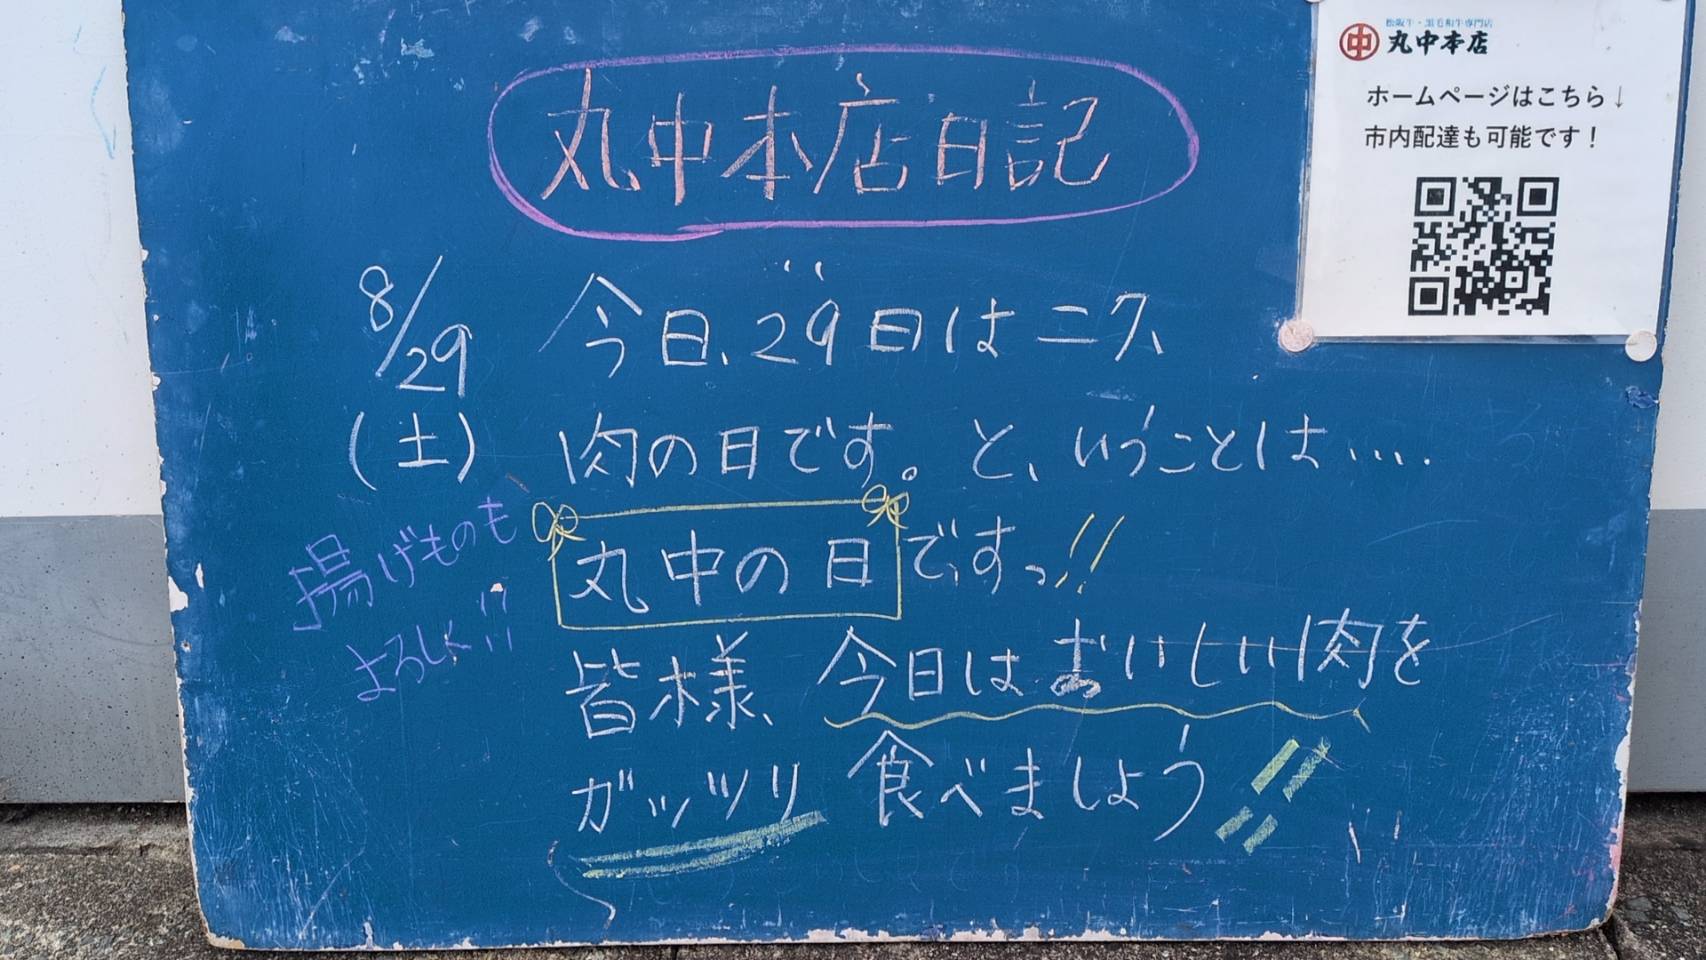 丸中本店日記
8/29
(土)
今日、29日はニク
肉の日です。と、いうことは....
丸中の日ですっ!!
皆様、今日はおいしい肉を
ガッツリ食べましょう!!
揚げものも
よろしく!!
松阪牛・黒毛和牛専門店
中 丸中本店
ホームページはこちら↓
市内配達も可能です!